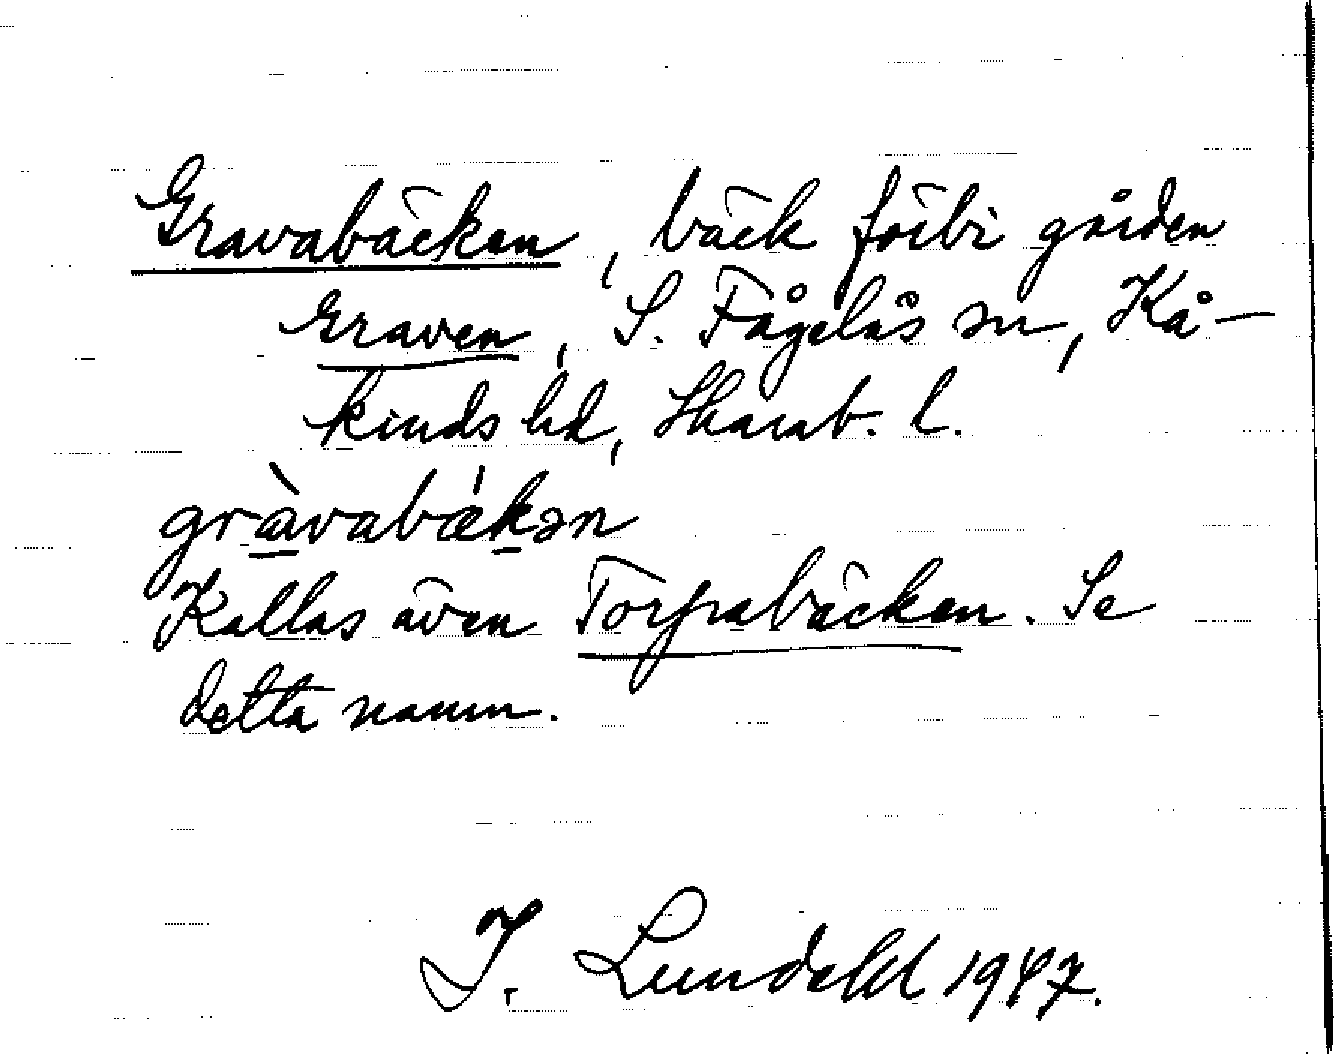 Gravabäcken, bäck förbi gården
Graven, S. Fågelås sn, Kå-
kinds hd, Skarab. l.
gràvabǽkən
Kallas även Torpabäcken. Se
detta namn.
I. Lundahl 1947.